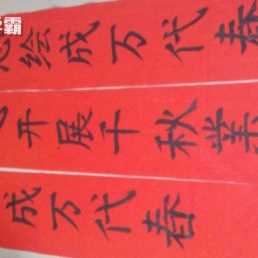 霸
绘成万代春
开展千秋業
成万代春